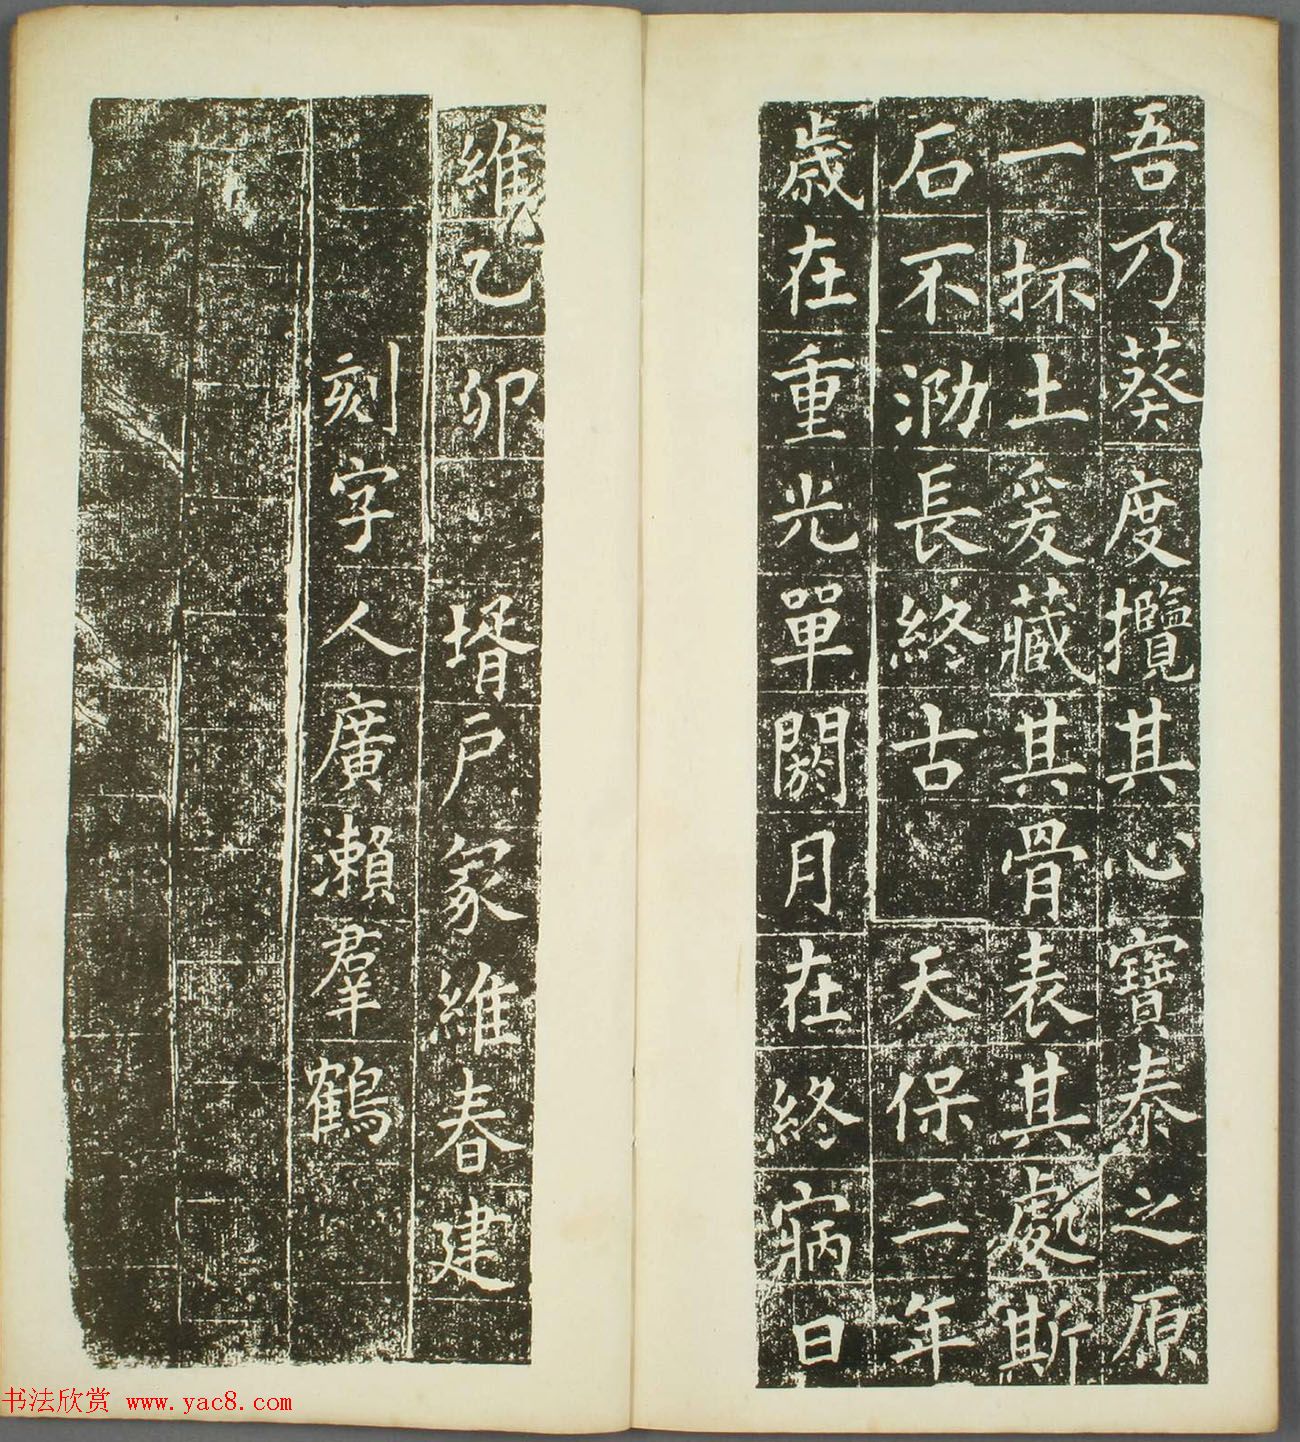 吾乃葵度攬其心寶泰之原
一抔土爰藏其骨表其處斯
石不泐長終古 天保二年
歲在重光單閼月在終寎日
維乙卯 壻戶冢維春建
刻字人廣瀨羣鶴
书法欣赏 www.yac8.com